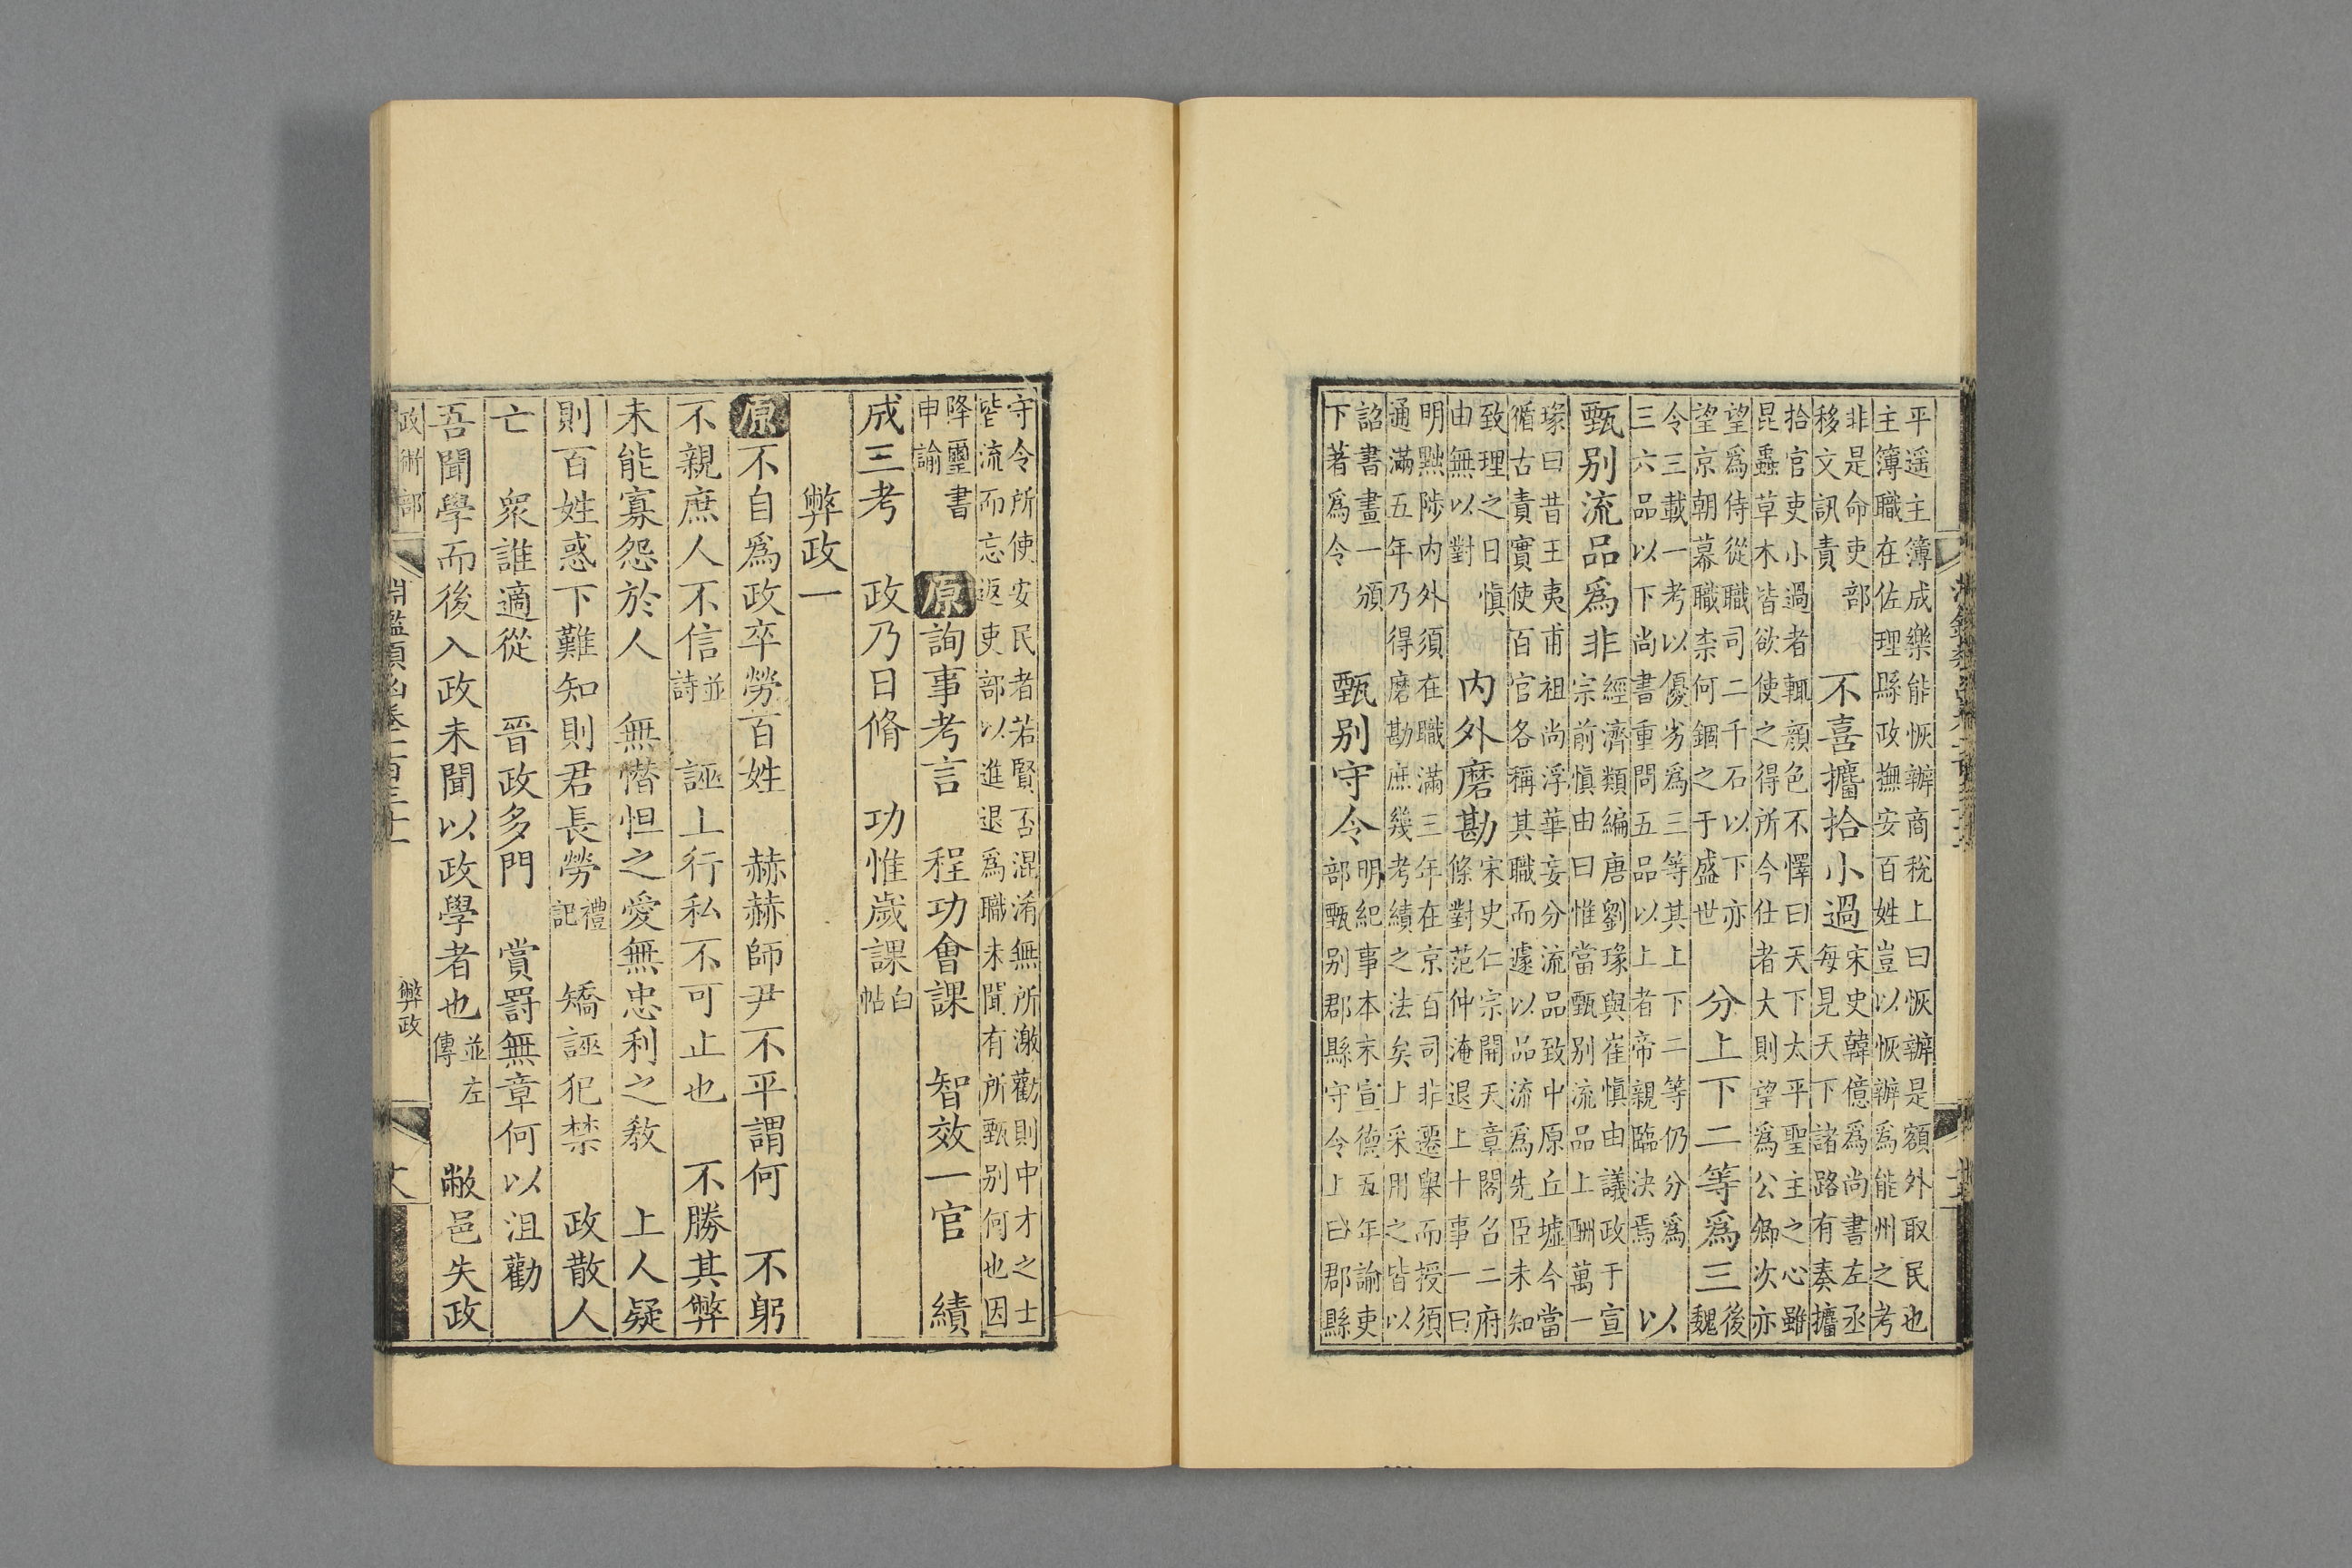 平遥主簿成樂能恢辦商稅上曰恢辦是額外取民也
主簿職在佐理縣政撫安百姓豈以恢辦爲能州之考
非是命吏部
移文訊責
不喜攟拾小過
宋史韓億爲尚書左丞
每見天下諸路有奏攟
拾官吏小過者輒顔色不懌曰天下太平聖主之心雖
昆蟲草木皆欲使之得所今仕者大則望爲公卿次亦
望爲侍從職司二千石以下亦
望京朝幕職柰何錮之于盛世
分上下二等爲三
後
魏
令三載一考以優劣爲三等其上下二等仍分爲
三六品以下尚書重問五品以上者帝親臨決焉
以
甄别流品爲非
經濟類編唐劉瑑與崔慎由議政于宣
宗前慎由曰惟當甄别流品上酬萬一
瑑曰昔王夷甫祖尚浮華妄分流品致中原丘墟今當
循古責實使百官各稱其職而遽以品流爲先臣未知
致理之日慎
由無以對
内外磨勘
宋史仁宗開天章閣召二府
條對范仲淹退上十事一曰
明黜陟内外須在職滿三年在京百司非選舉而授須
通滿五年乃得磨勘庶幾考績之法矣上采用之皆以
詔書畫一頒
下著爲令
甄别守令
明紀事本末宣德五年諭吏
部甄别郡縣守令上曰郡縣
守令所使安民者若賢否混淆無所激勸則中才之士
皆流而忘返吏部以進退爲職未聞有所甄别何也因
降璽書
申諭
原詢事考言　程功會課　智效一官　績
成三考　政乃日脩　功惟歲課
白
帖
弊政一
原不自爲政卒勞百姓　赫赫師尹不平謂何　不躬
不親庶人不信
並
詩
誣上行私不可止也　不勝其弊
未能寡怨於人　無憯怛之愛無忠利之教　上人疑
則百姓惑下難知則君長勞
禮
記
矯誣犯禁　政散人
亡　衆誰適從　晉政多門　賞罸無章何以沮勸
吾聞學而後入政未聞以政學者也
並左
傳
敝邑失政
政術部
淵鑑類函卷一百三十一
弊政